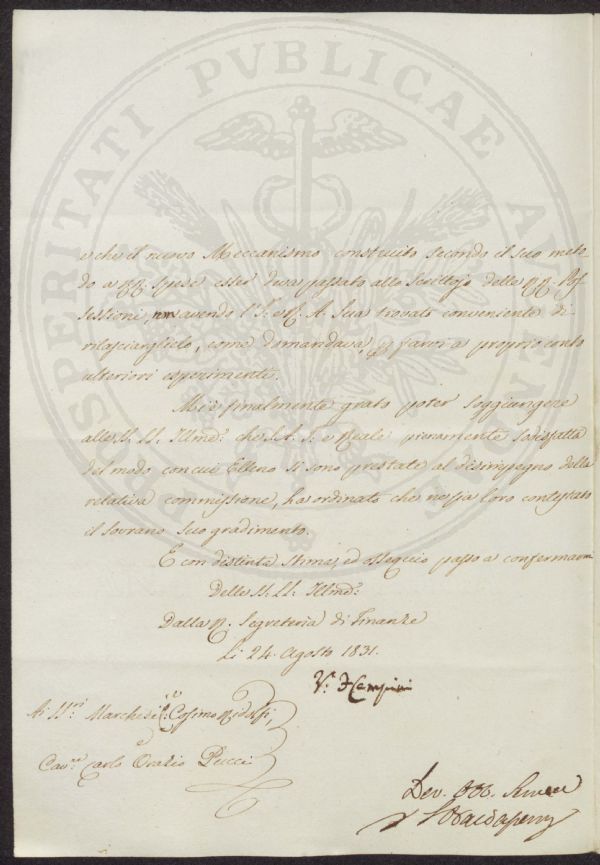 PROSPERITATI PVBLICAE AVGENDAE
e che il nuovo Meccanismo construito secondo il suo meto-
do a RR. Spese esser deva passato allo Scrittojo delle RR. Pos-
sessioni, non avendo l'I. e R. A. Sua trovato conveniente di
rilasciarglielo, come domandava, p farvi a proprio conto
ulteriori esperimenti.
Mi è finalmente grato poter soggiungere
alle LL. LL. Illme: che S. A. I. e Reale pienamente sodisfatta
del modo con cui Elleno si sono prestate al disimpegno della
relativa commissione, ha ordinato che ne sia loro contestato
il sovrano suo gradimento.
E con distinta stima, ed ossequio passo a confermarmi
Delle LL. LL. Illme:
Dalla R. Segreteria di Finanze
Li 24. Agosto 1831.
Vo. F Cempini
Ai SSri. Marchese Cosimo Ridolfi,
e
Cavre. Carlo Orazio Pucci
Dev. Obb. Servre